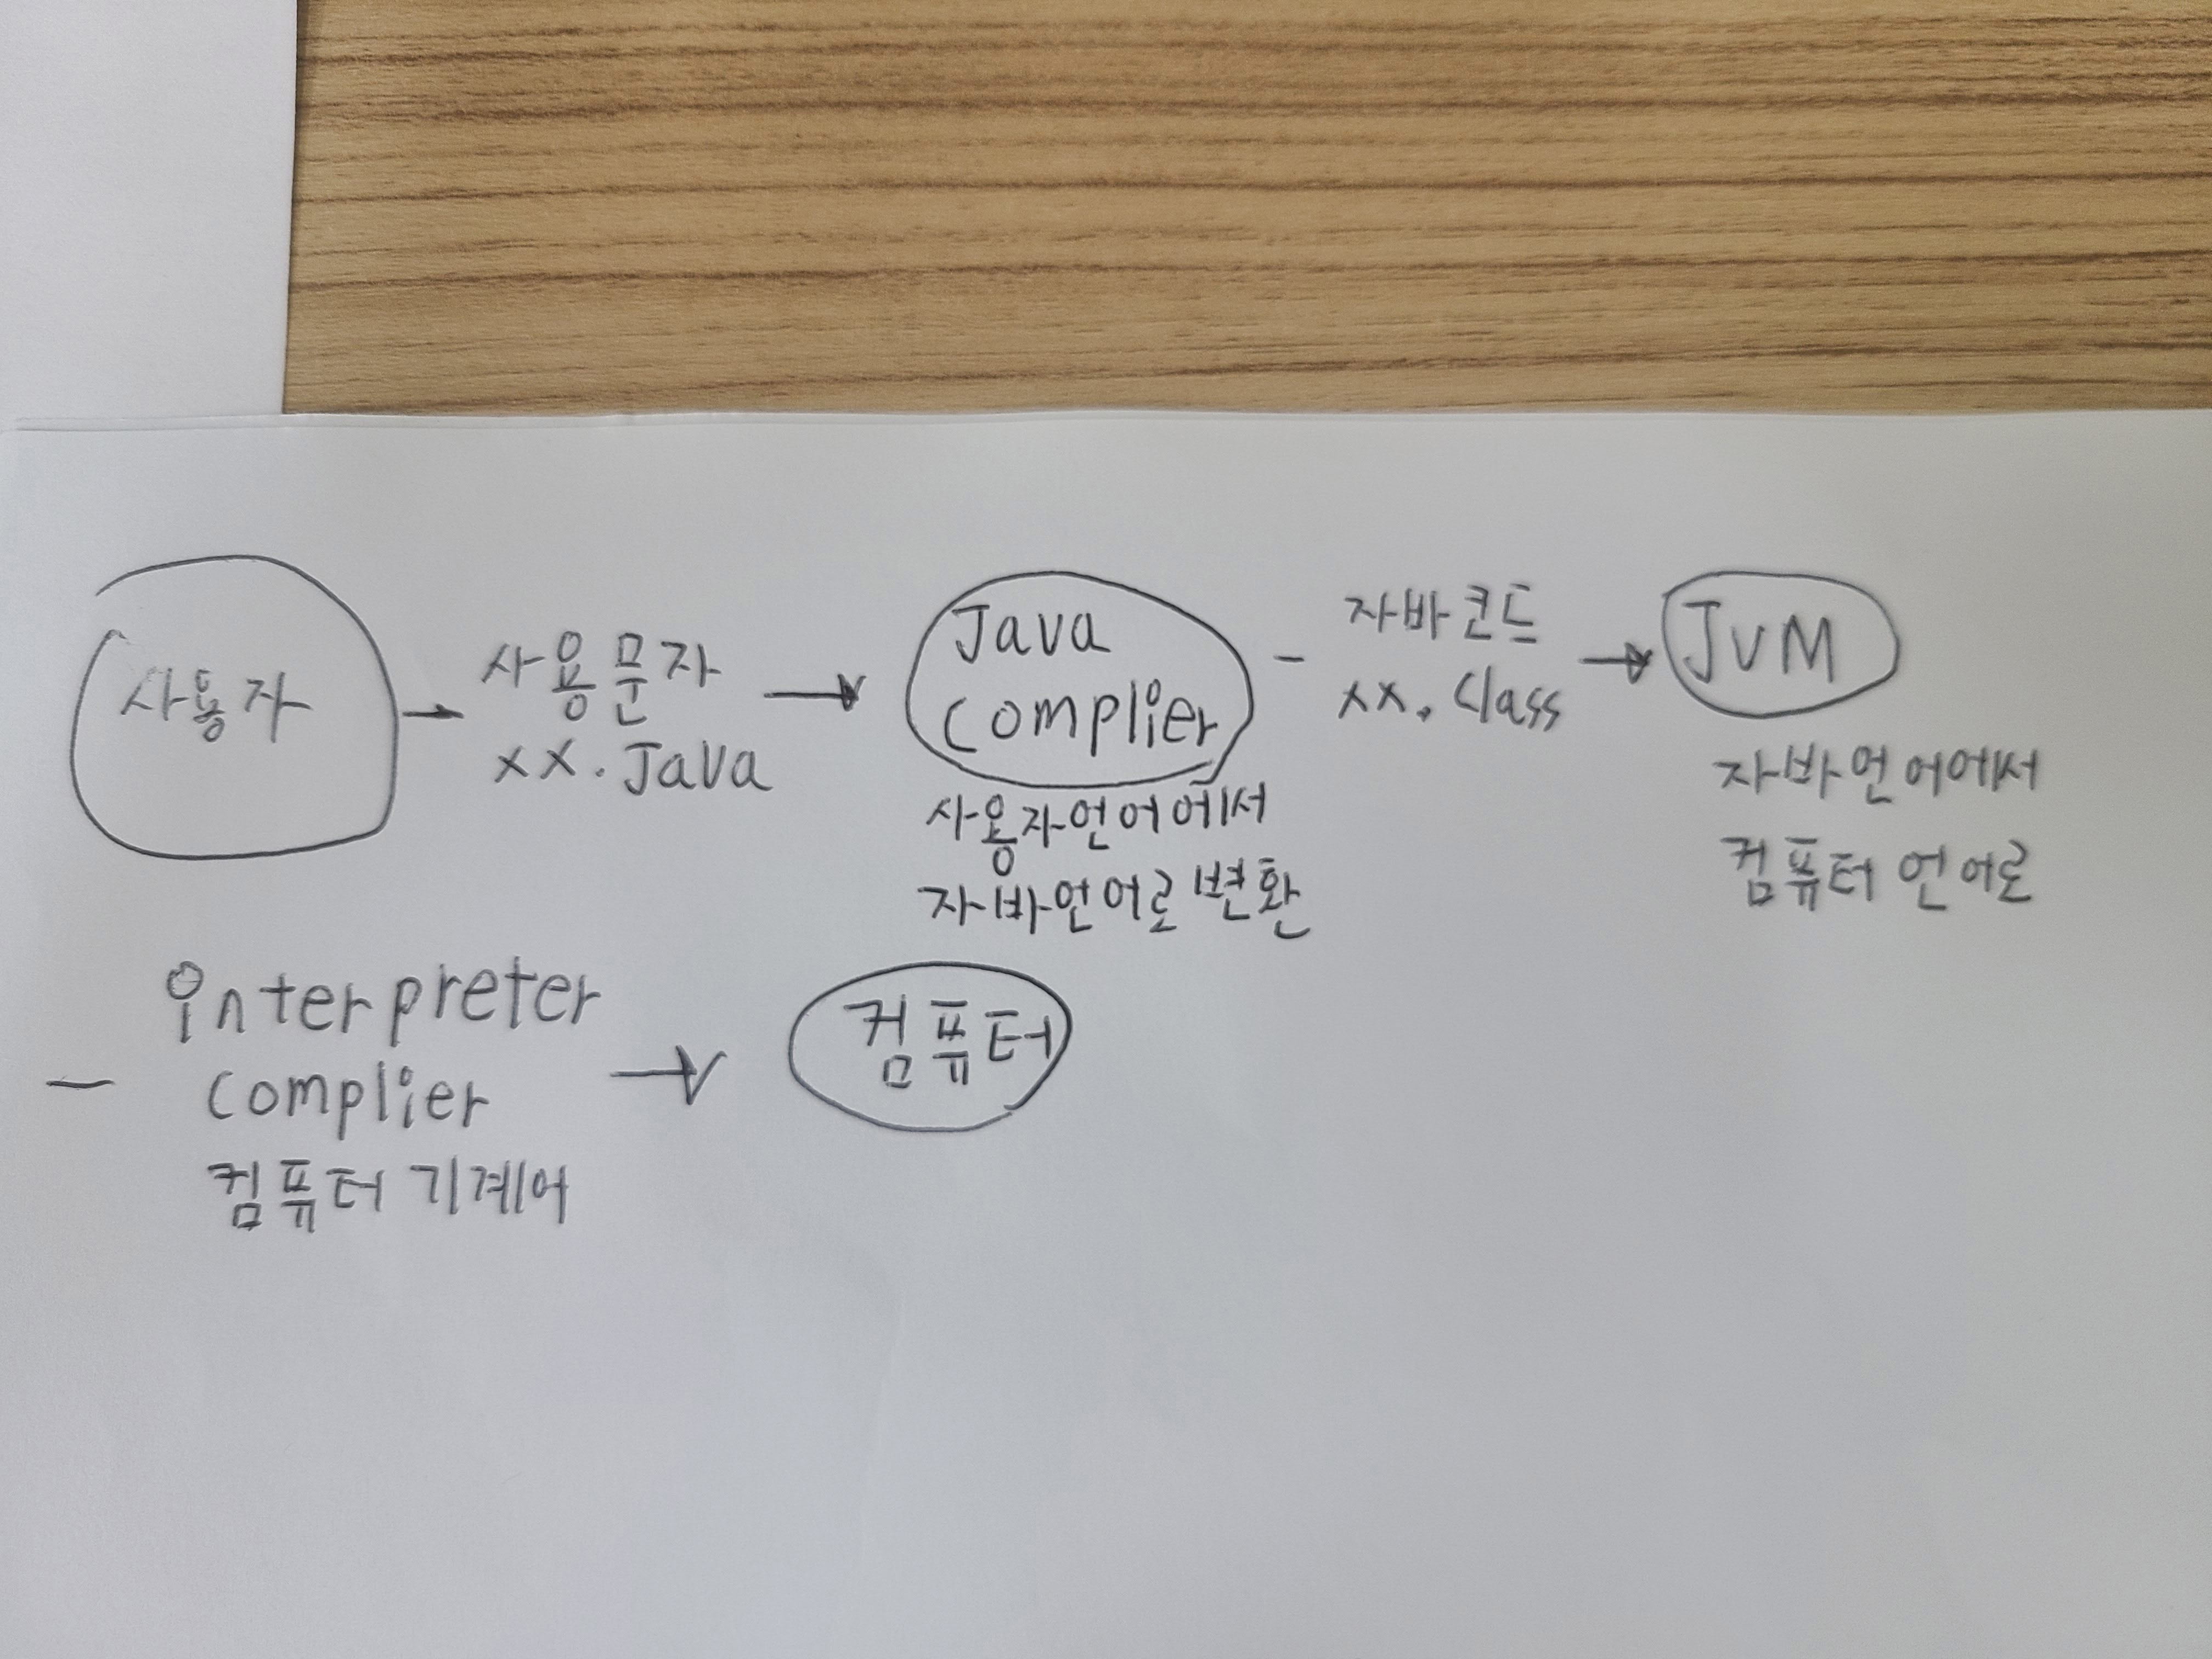 사용자
사용문자
xx.Java
Java
Complier
사용자언어에서
자바언어로 변환
자바코드
xx.Class
JVM
자바언어에서
컴퓨터 언어로
interpreter
Complier
컴퓨터 기계어
컴퓨터